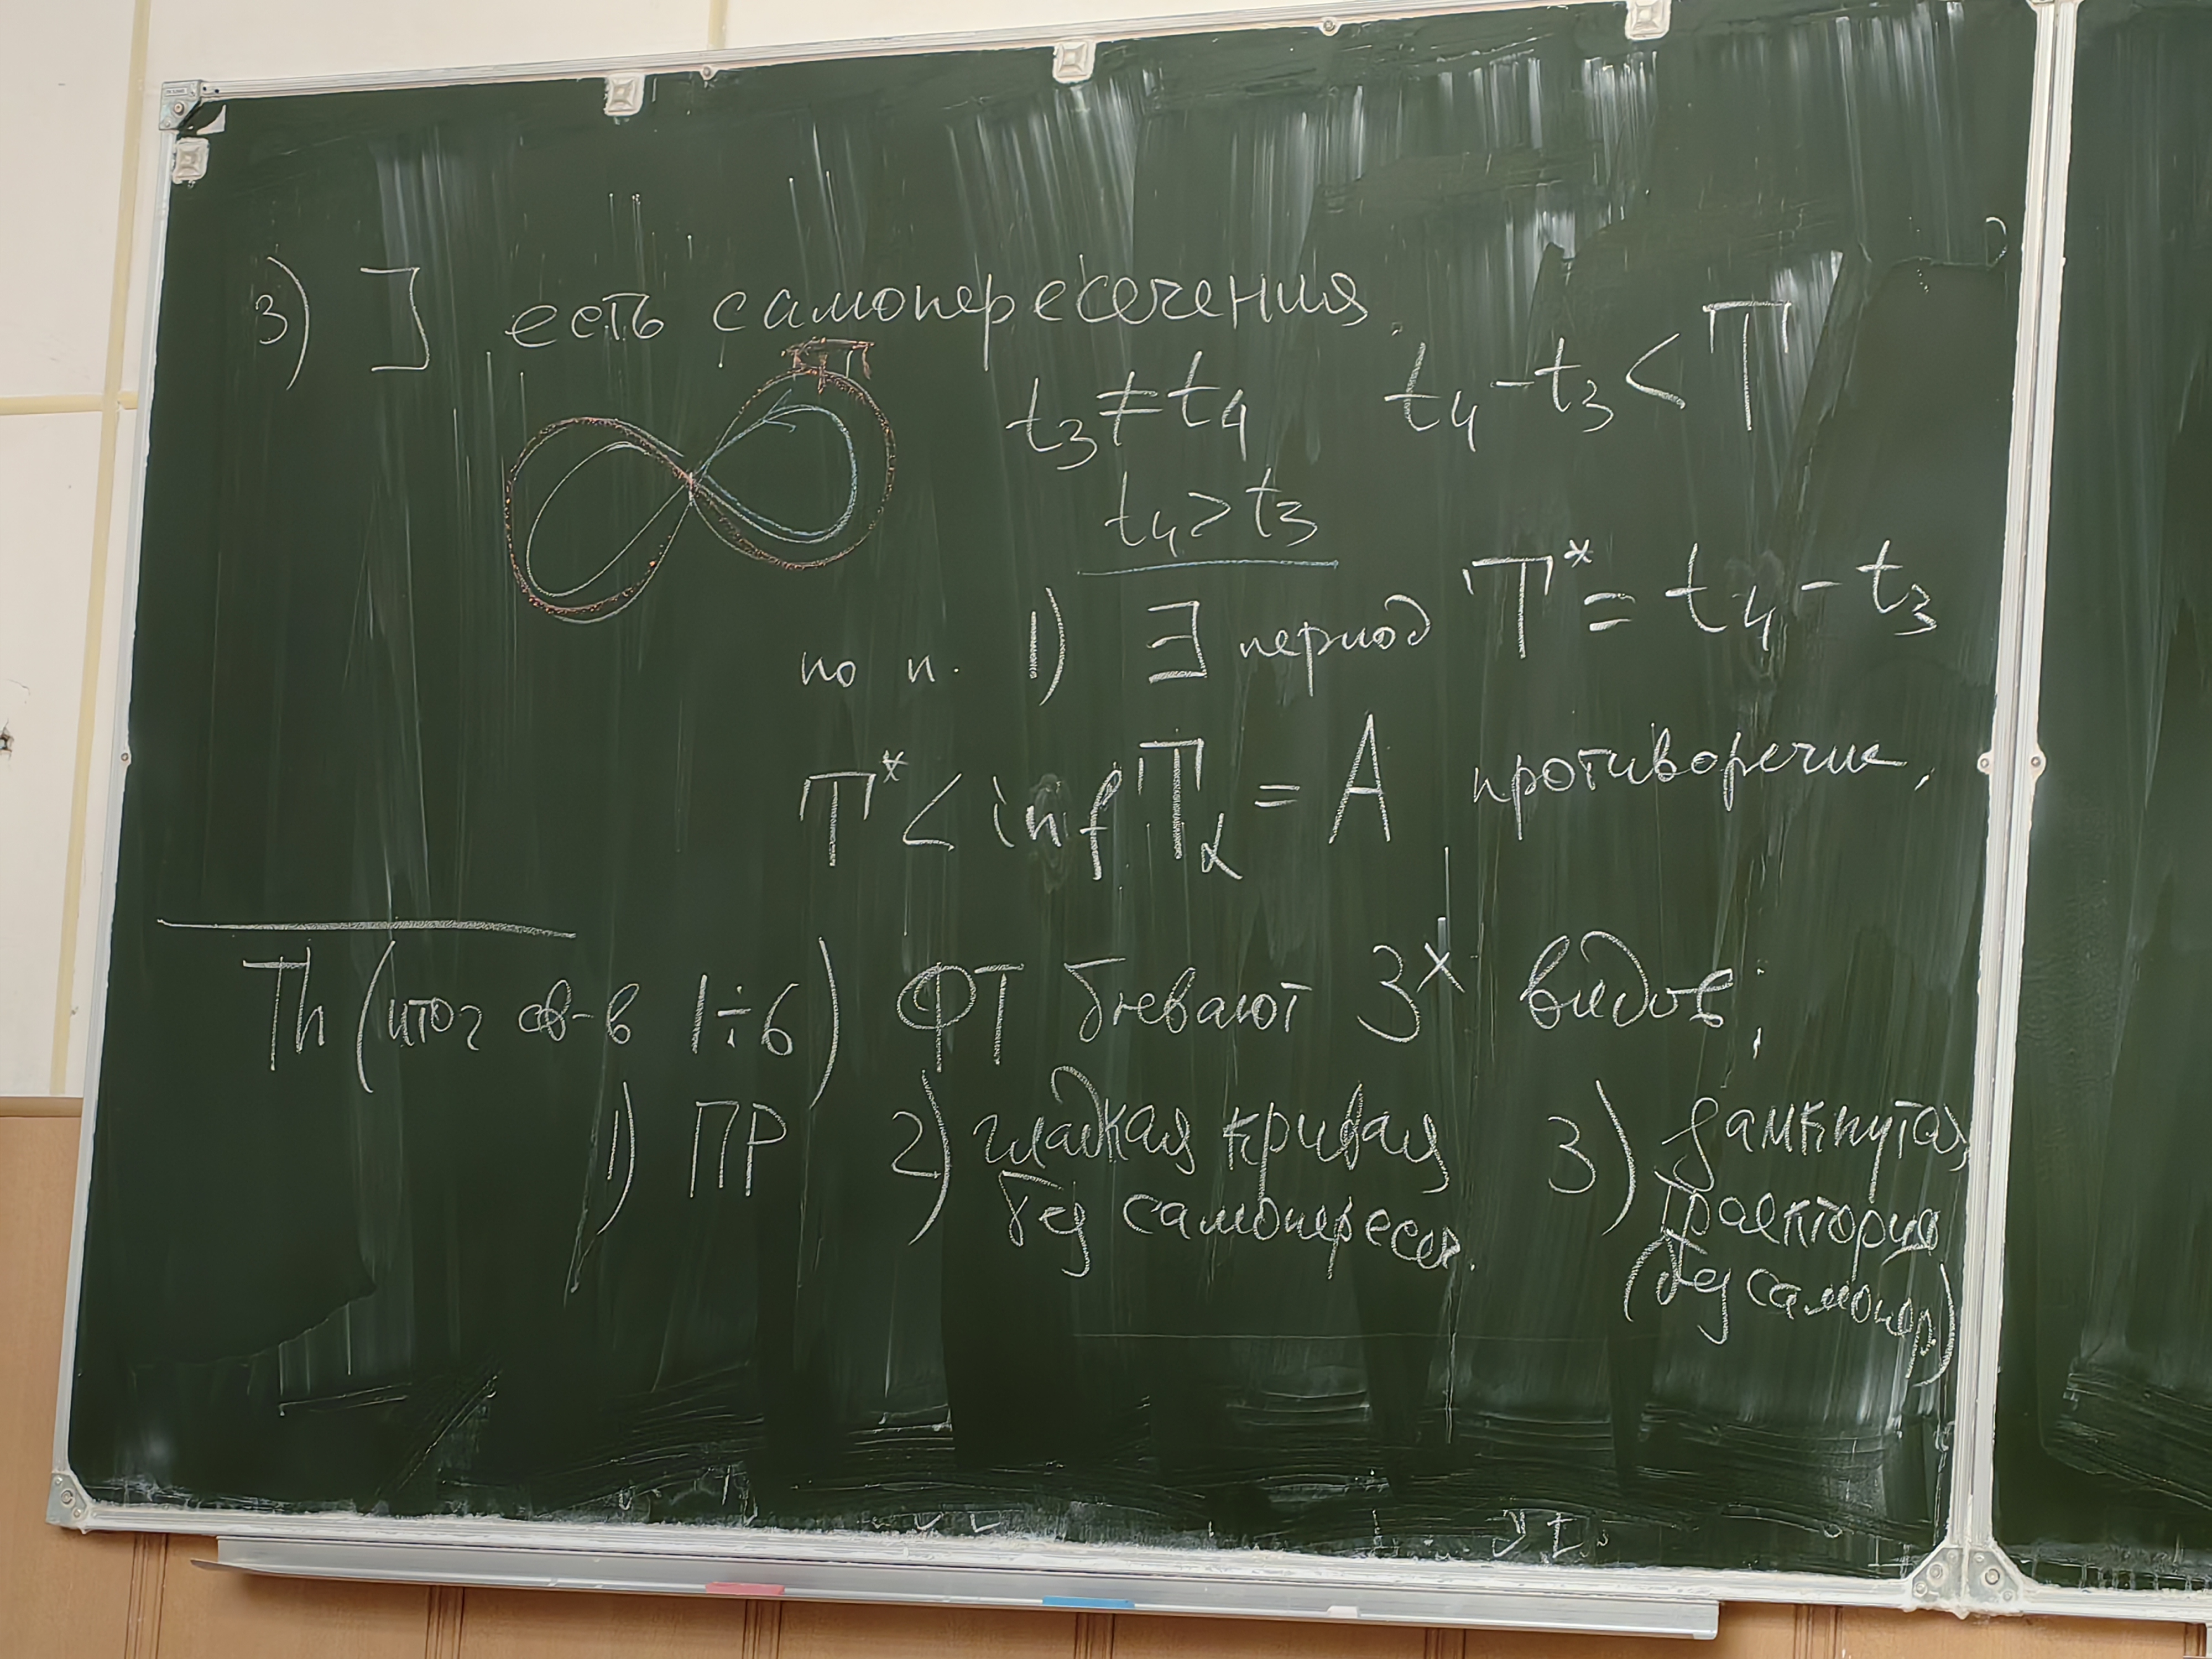 3) ] есть самопересечения.
T
t₃ ≠ t₄ t₄ - t₃ < T
t₄ > t₃
по п. 1) ∃ период T* = t₄ - t₃
T* < inf T_α = A противоречие,
Th (итог св-в 1÷6) ФТ бывают 3ˣ видов:
1) ПР 2) гладкая кривая 3) замкнутая
без самопересеч. траектория
(без самопер.)